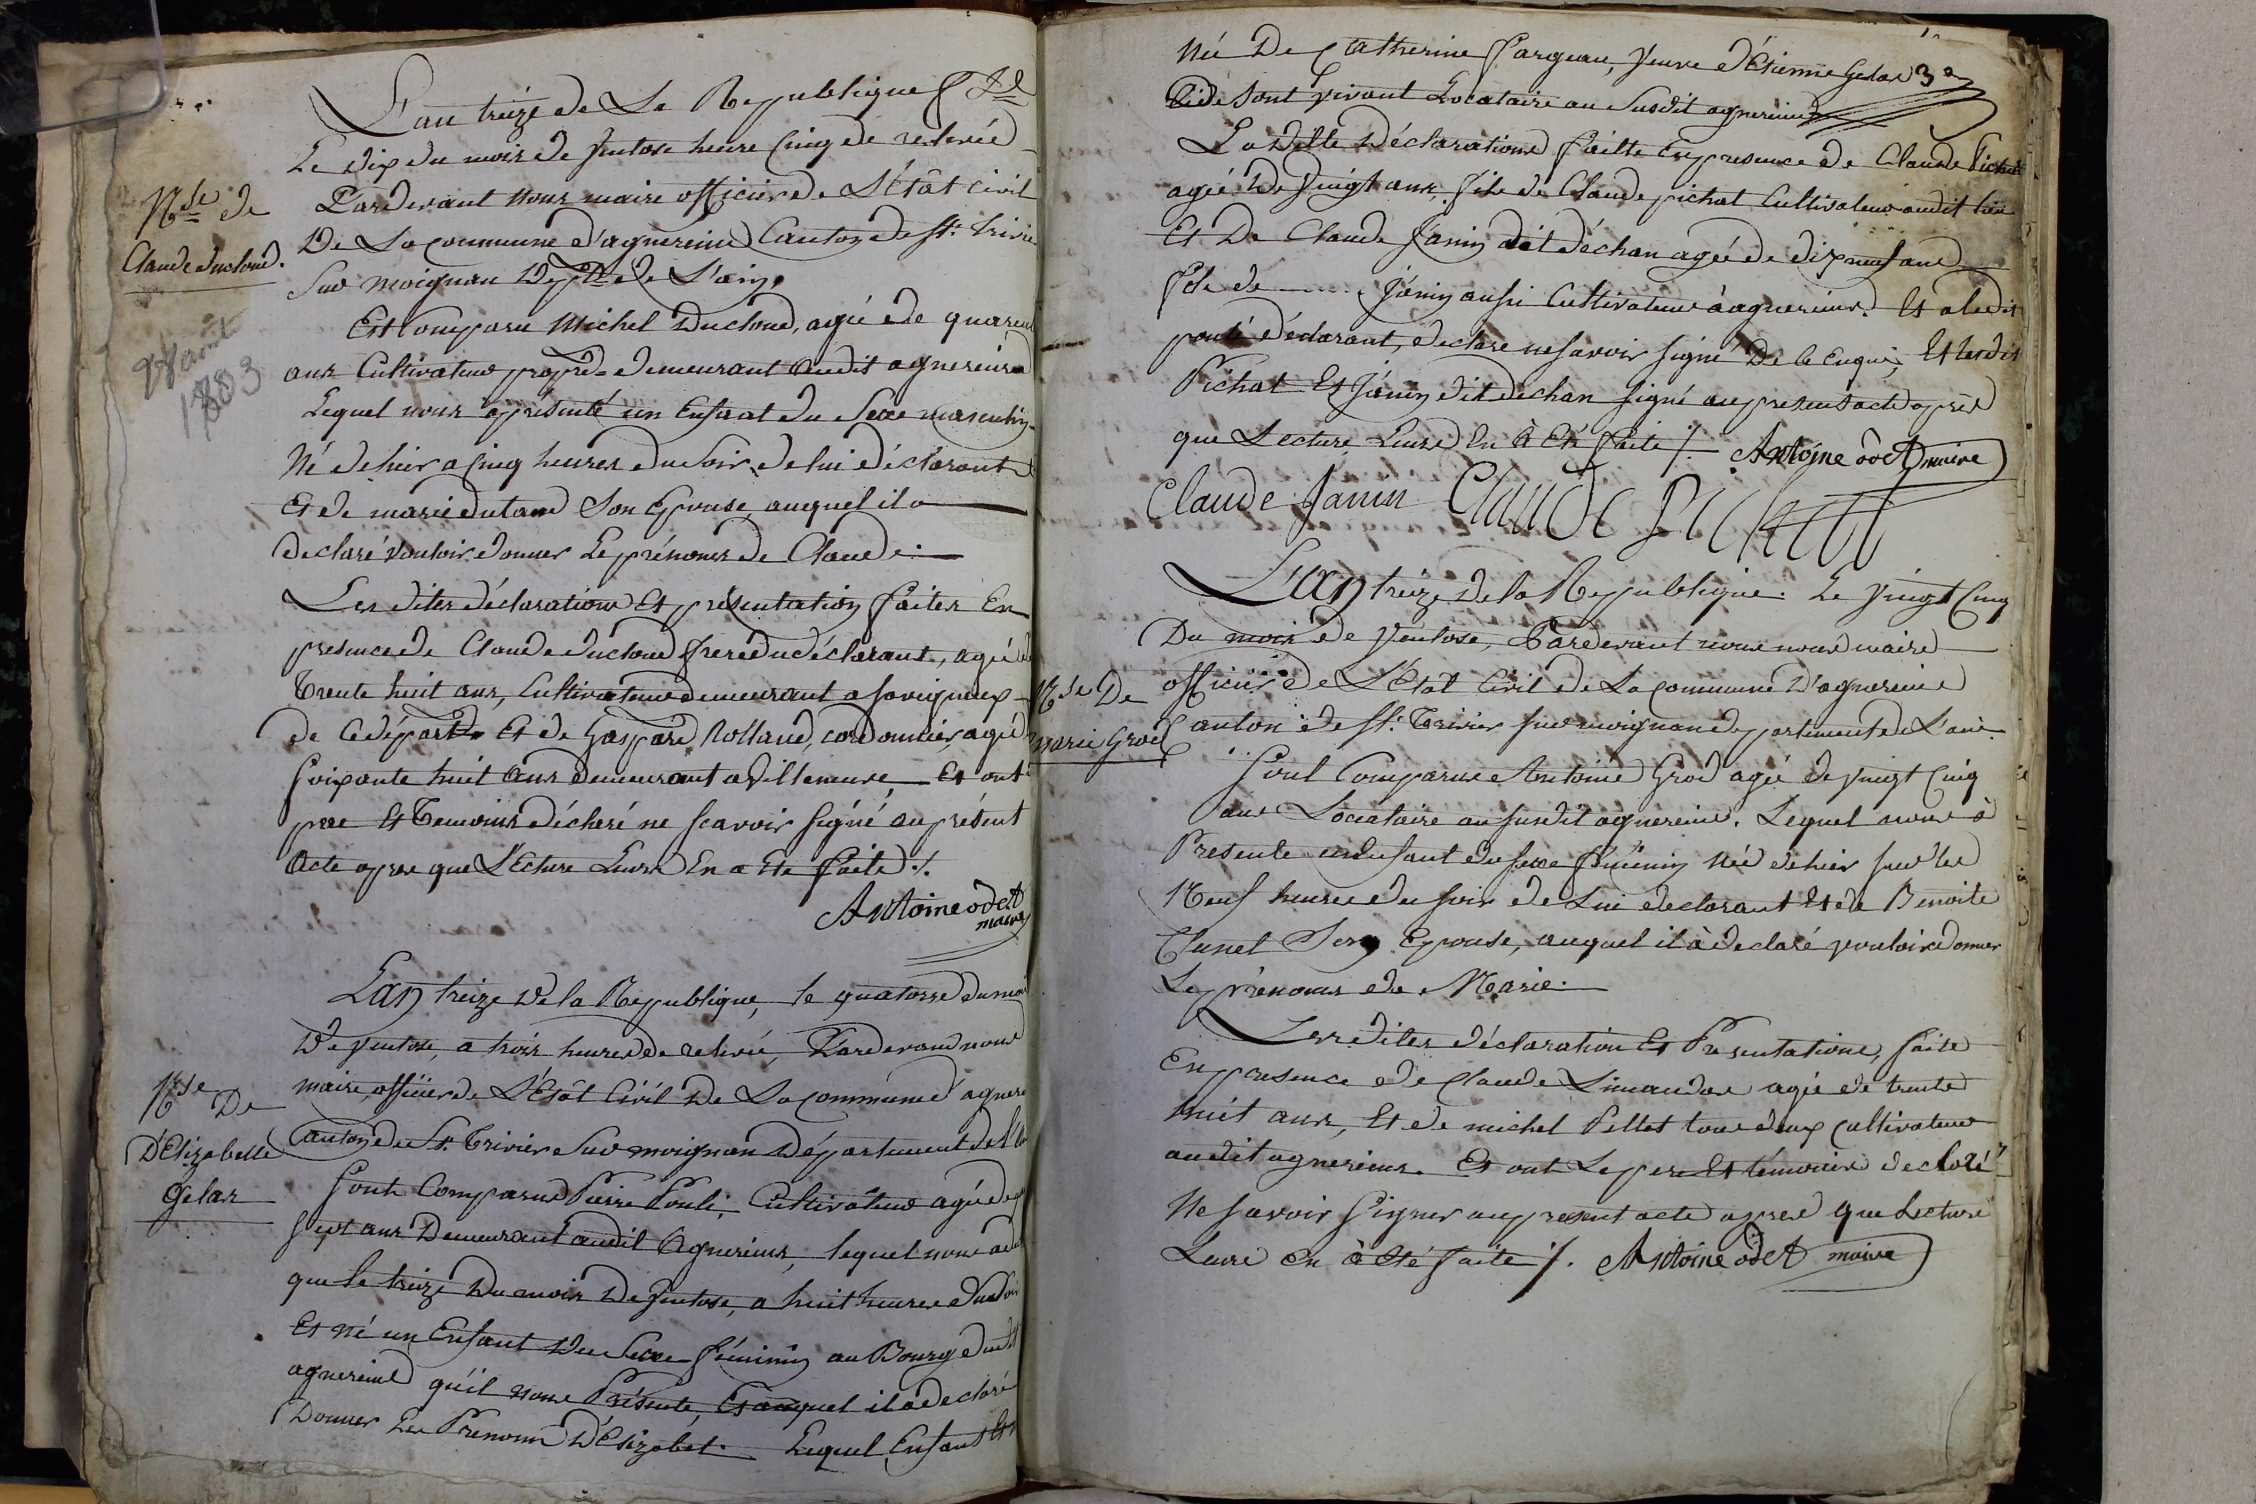 L'an treize de La Republique f.
Le dix du mois de Ventose heure Cinq de relevée
Pardevant Nous maire officier de L'état civil
De La Commune d'agnereins Canton de St. Trivier
Sur moignan Dept. de L'ain,
N.ce de
Claude ducloud.
28 août
1803
Est Comparu Michel Ducloud, agée de quarente
ans Cultivateur propre. demeurant Audit agnereins
Lequel nous a présenté un Enfant du Sexe masculin
Né de hier a Cinq heures du Soir, de lui déclarant
Et de marie dutand Son Epouse, auquel il a
declaré vouloir donner Le prénoms de Claude.
Les dites déclarations Et présentation faites En
présence de Claude ducloud frere du déclarant, agée de
Trente huit ans, Cultivateur demeurant a savigneux
de Ce départ. Et de Gaspard Rolland, cordonnier, agée
Soixante huit Ans demeurant a Villeneuve, Et ont
pere Et Temoins déclaré ne scavoir Signé au présent
Acte apres que L'Ecture Leurs En a Eté faite ./.
Antoine odet
maire
Lan treize de la Republique, le quatorse du mois
De ventose, a trois heures de relevée, Pardevand nous
maire, officier de L'Etât Civil De La Commune d'agnere
Canton de St. Trivier Sur moignan Département de l'ain
N.ce De
D'Elizabette
Gelas
Sont Comparue Pierre Poulé, Cultivateur agée de
sept ans Demeurant audit Agnereins, lequel nous
que le treize Du mois De Ventose, a huit heures du Soir
Et né un Enfant Du Sexe féminin au Bourg dudit
agnereins qu'il nous Présente, Et auquel il a declaré
Donner Les Prenoms D'Elizabet. Lequel Enfant Et
Née De Catherine Fargeau, veuve d'Etienne Gelas 3e
Vide Sont vivant Locataire au Susdit agnereins
La ditte Déclarations faitte En presence de Claude Pichat
agée De vingt ans, fils de Claude pichat Cultivateur audit lieu
Et De Claude Janin dit déchan agée de dix neuf ans
fils de ...... Janin aussi Cultivateur à agnereins. Et a ledit
poulé déclarant, declare ne savoir signé De ce Enquis, Et lesdits
Pichat Et Janin dit dechan signé au present acte après
que Lecture Leurs En à Eté faite /.
Antoine odet maire
Claude Janin Claude Pichat
Lan treize de la Republique. Le vingt Cinq
Du mois de Ventose, Pardevant nous nous maire
officier de L'Etat Civil de La Commune d'agnereins
Canton de St. Trivier sur moignan departement de L'ain
N.ce De
marie Gros
Sont Comparue Antoine Gros agée de vingt Cinq
ans Locataire au susdit agnereins. Lequel nous à
Presente un Enfant du sexe féminin Née de hier sur les
Neuf heures du soir de Lui declarant Et de Benoite
Clunet Son Epouse, auquel il à declaré vouloir donner
Le prénoms de Marie.
Les dites déclaration Et Présentations, faite
En presence de Claude Limandas agée de trente
huit ans, Et de michel Pellet tous deux Cultivateur
audit agnereins. Et ont Le pere Et témoins declaré
Ne savoir signer au present acte apres que Lecture
Leurs en à été faite /. Antoine odet maire